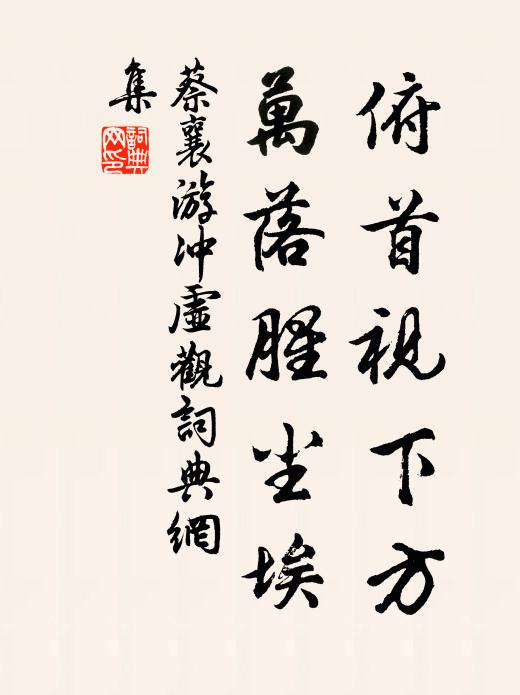 俯首視下方
萬落腥尘埃
蔡襄游沖虛觀詞典網
集
詞典
网印